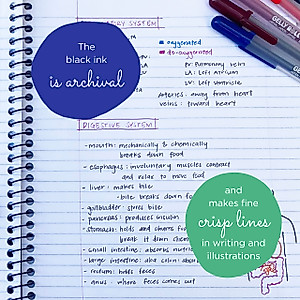 The
black ink
is archival
SYSTEM
oxygenated
de-oxygenated
PV: Pulmonary vein
LA: Left Atrium
LV: Left ventricle
Arteries: away from heart
veins: toward heart
GELLY ROLL
DIGESTIVE SYSTEM
- mouth: mechanically & chemically
breaks down food
- esophagus: involuntary muscles contract
and relax to move food
- liver: makes bile
- bile breaks down
- gallbladder: stores bile
- pancreas: produces insulin
- stomach: holds and churns
break it down
- small intestine: absorbs
- large intestine: aka colon
- rectum: holds feces
- anus: where feces comes out
and
makes fine
crisp lines
in writing and
illustrations